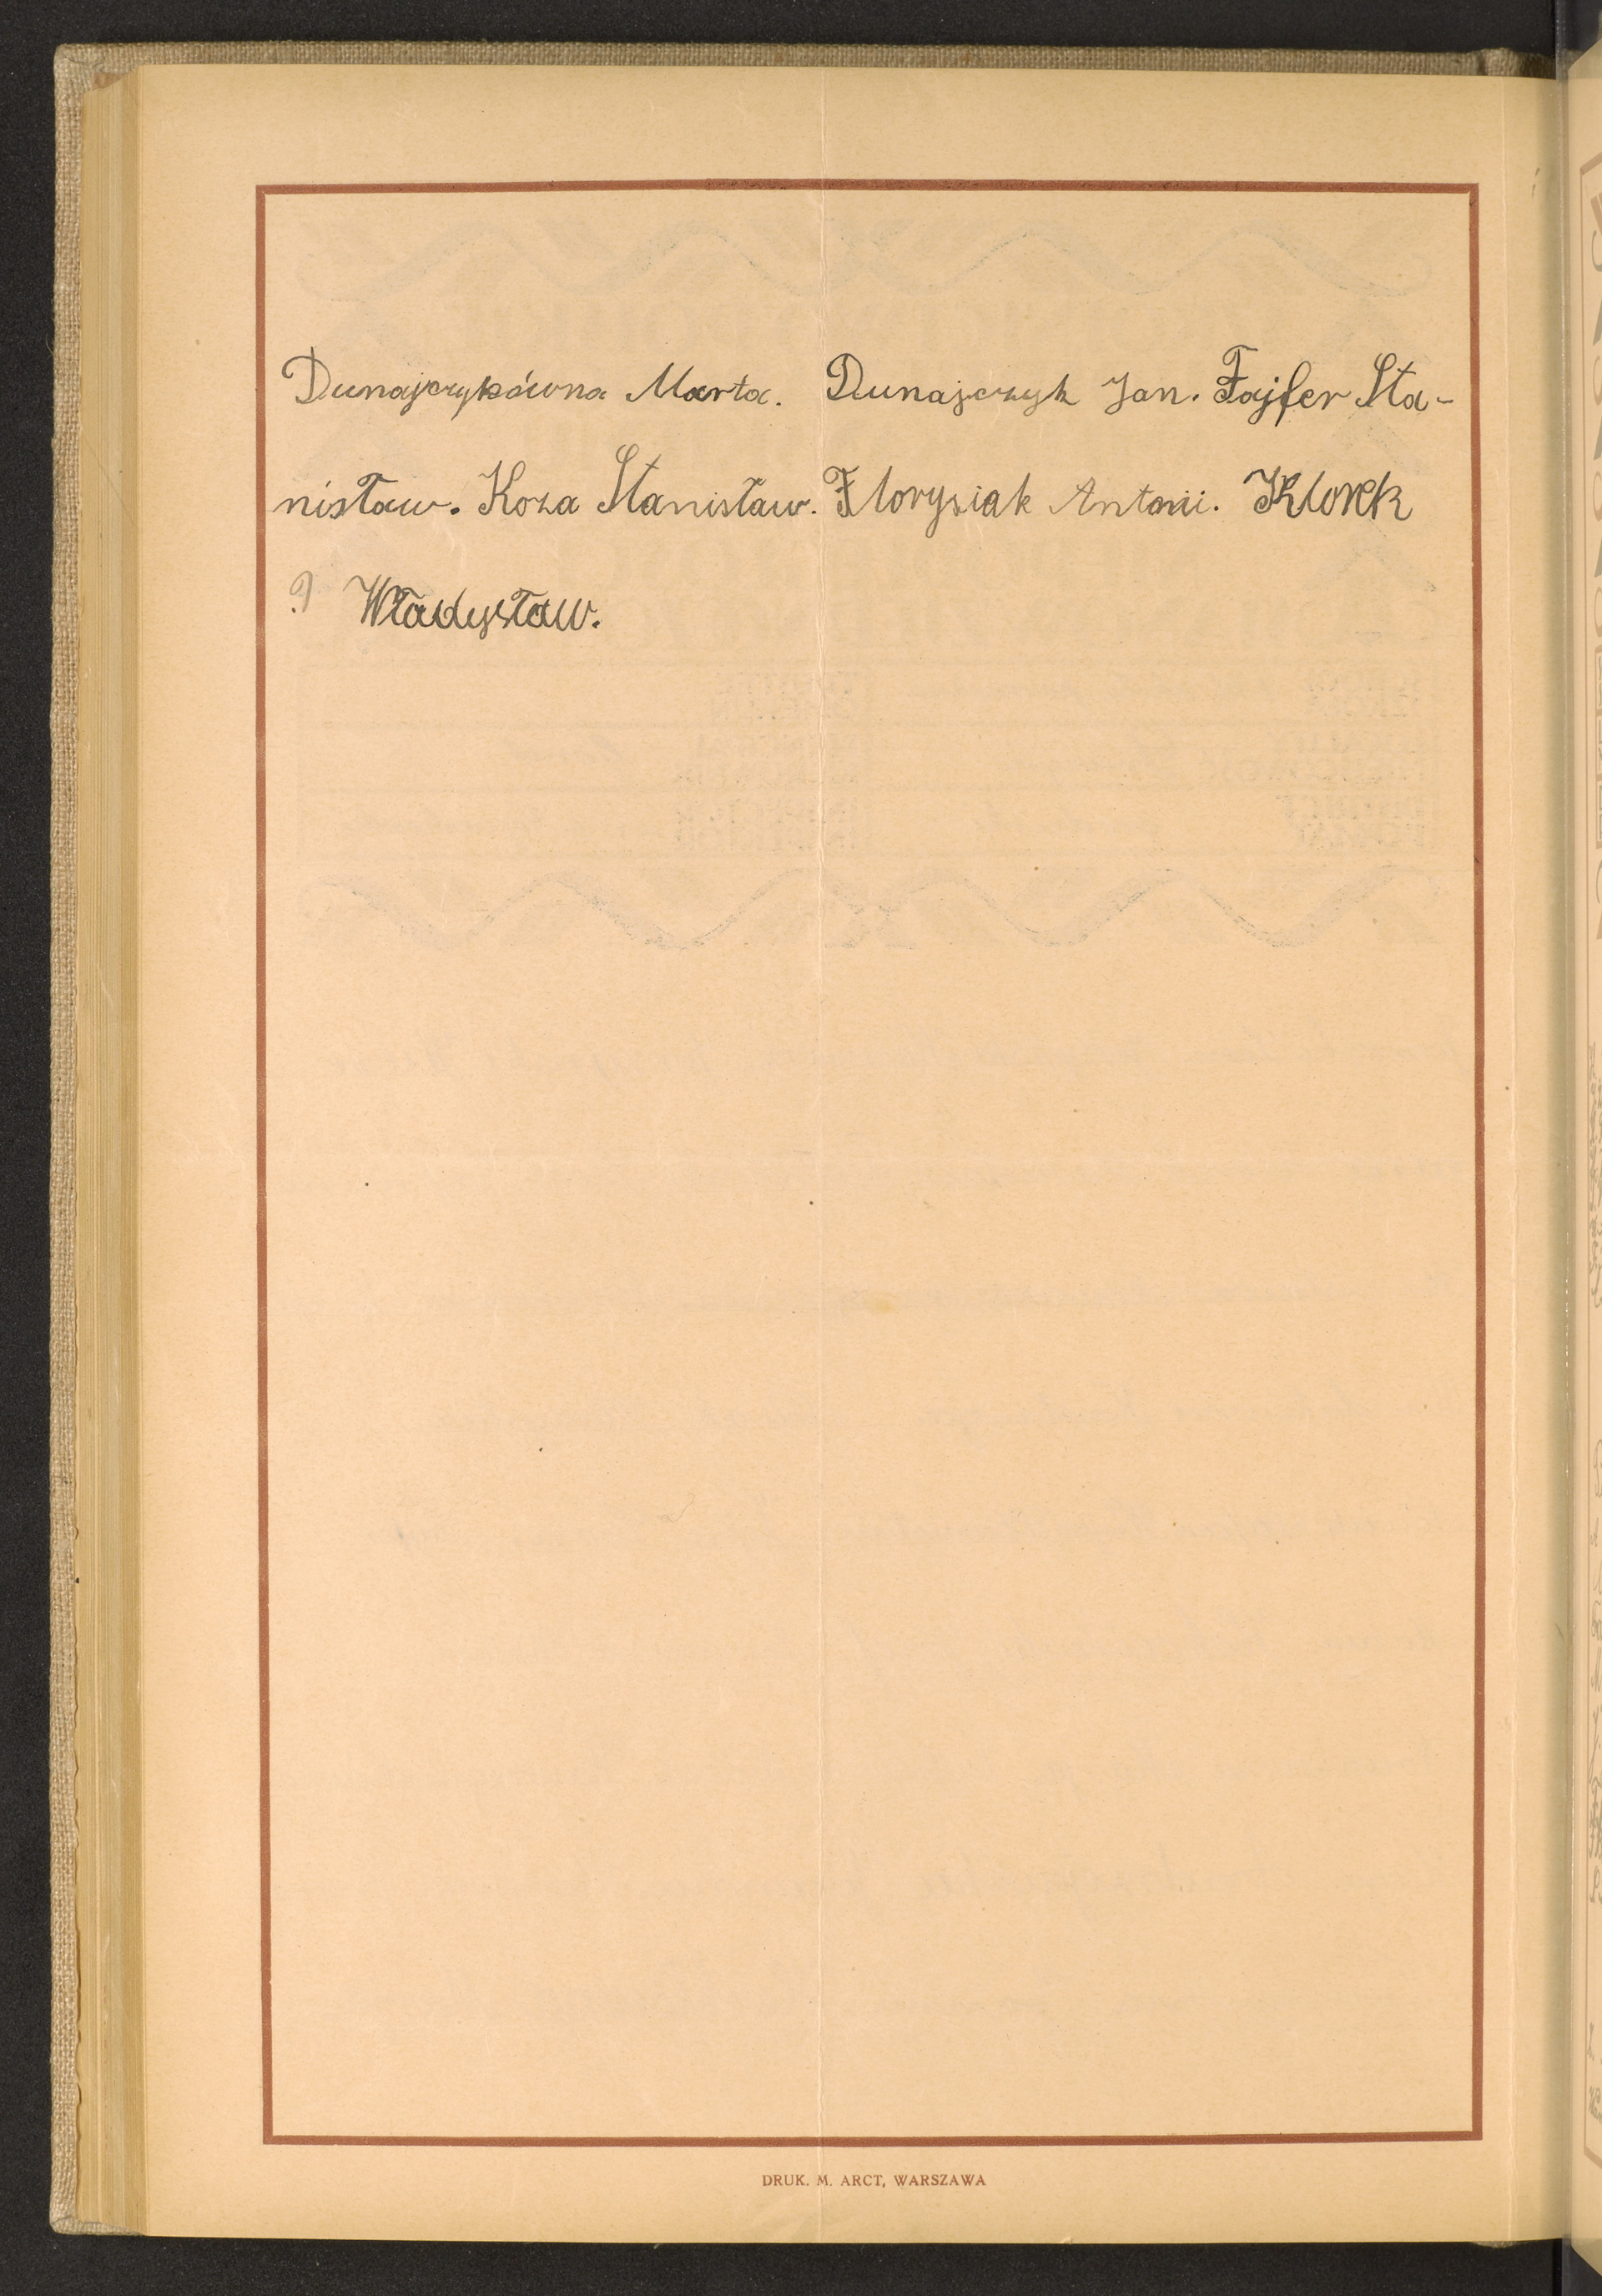 Dunajczykówna Marta. Dunajczyk Jan. Fajfer Sta-
nisław. Koza Stanisław. Florysiak Antoni. Klorek
Władysław.
DRUK. M. ARCT, WARSZAWA